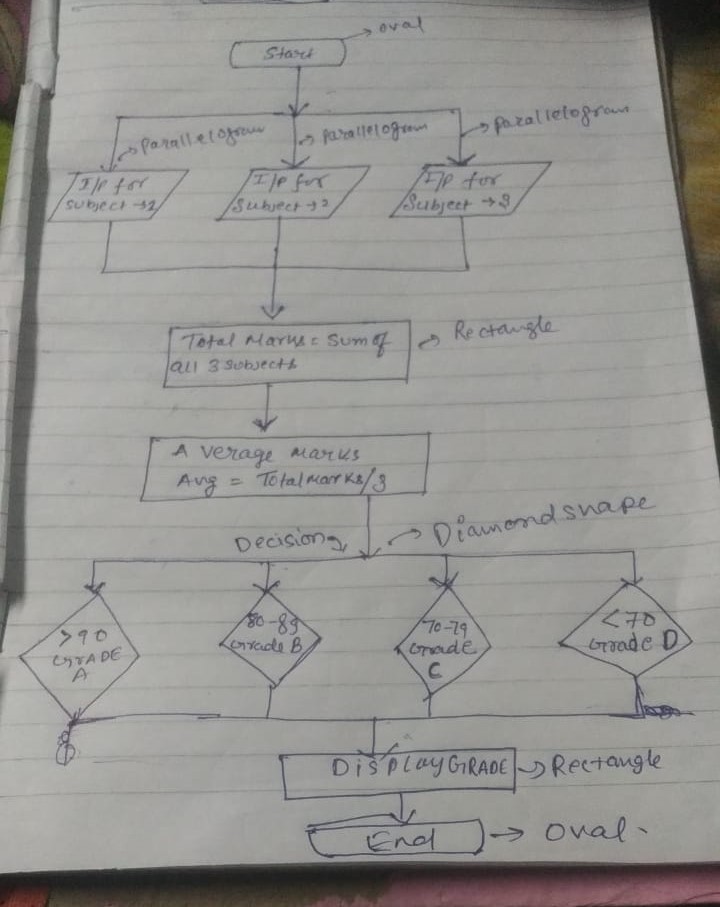 oval
Start
Parallelogram
Parallelogram
Parallelogram
I/P for
Subject →2
I/P for
Subject →2
I/P for
Subject →3
Total Marks = Sum of
all 3 subjects
Rectangle
Average marks
Avg = Total marks/3
Decision
Diamond shape
>90
GRADE
A
80-89
Grade B
70-79
Grade
C
<70
Grade D
Display GRADE
Rectangle
End
Oval.